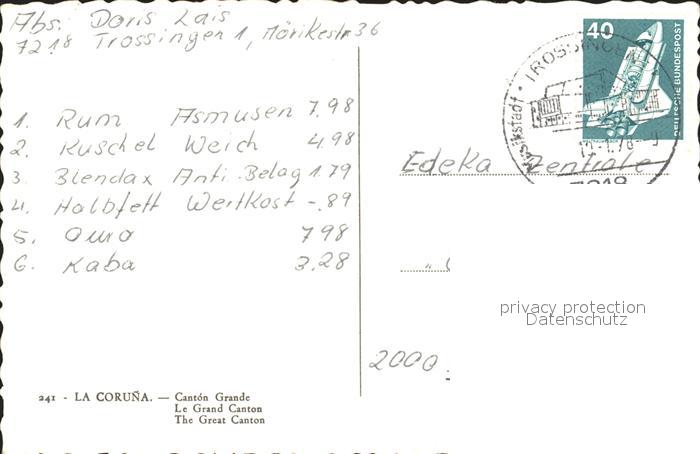 Abs. Doris Lais
7218 Trossingen 1, Mörikestr 36
1. Rum Asmusen 7,98
2. Kuschel Weich 4,98
3. Blendax Anti-Belag 1.79
4. Halbfett Wertkost -.89
5. Omo 7 98
6. Kaba 3.28
241 - LA CORUÑA. — Cantón Grande
Le Grand Canton
The Great Canton
40
DEUTSCHE BUNDESPOST
Musikstadt · TROSSINGEN
7218
Edeka Zentrale
privacy protection
Datenschutz
2000